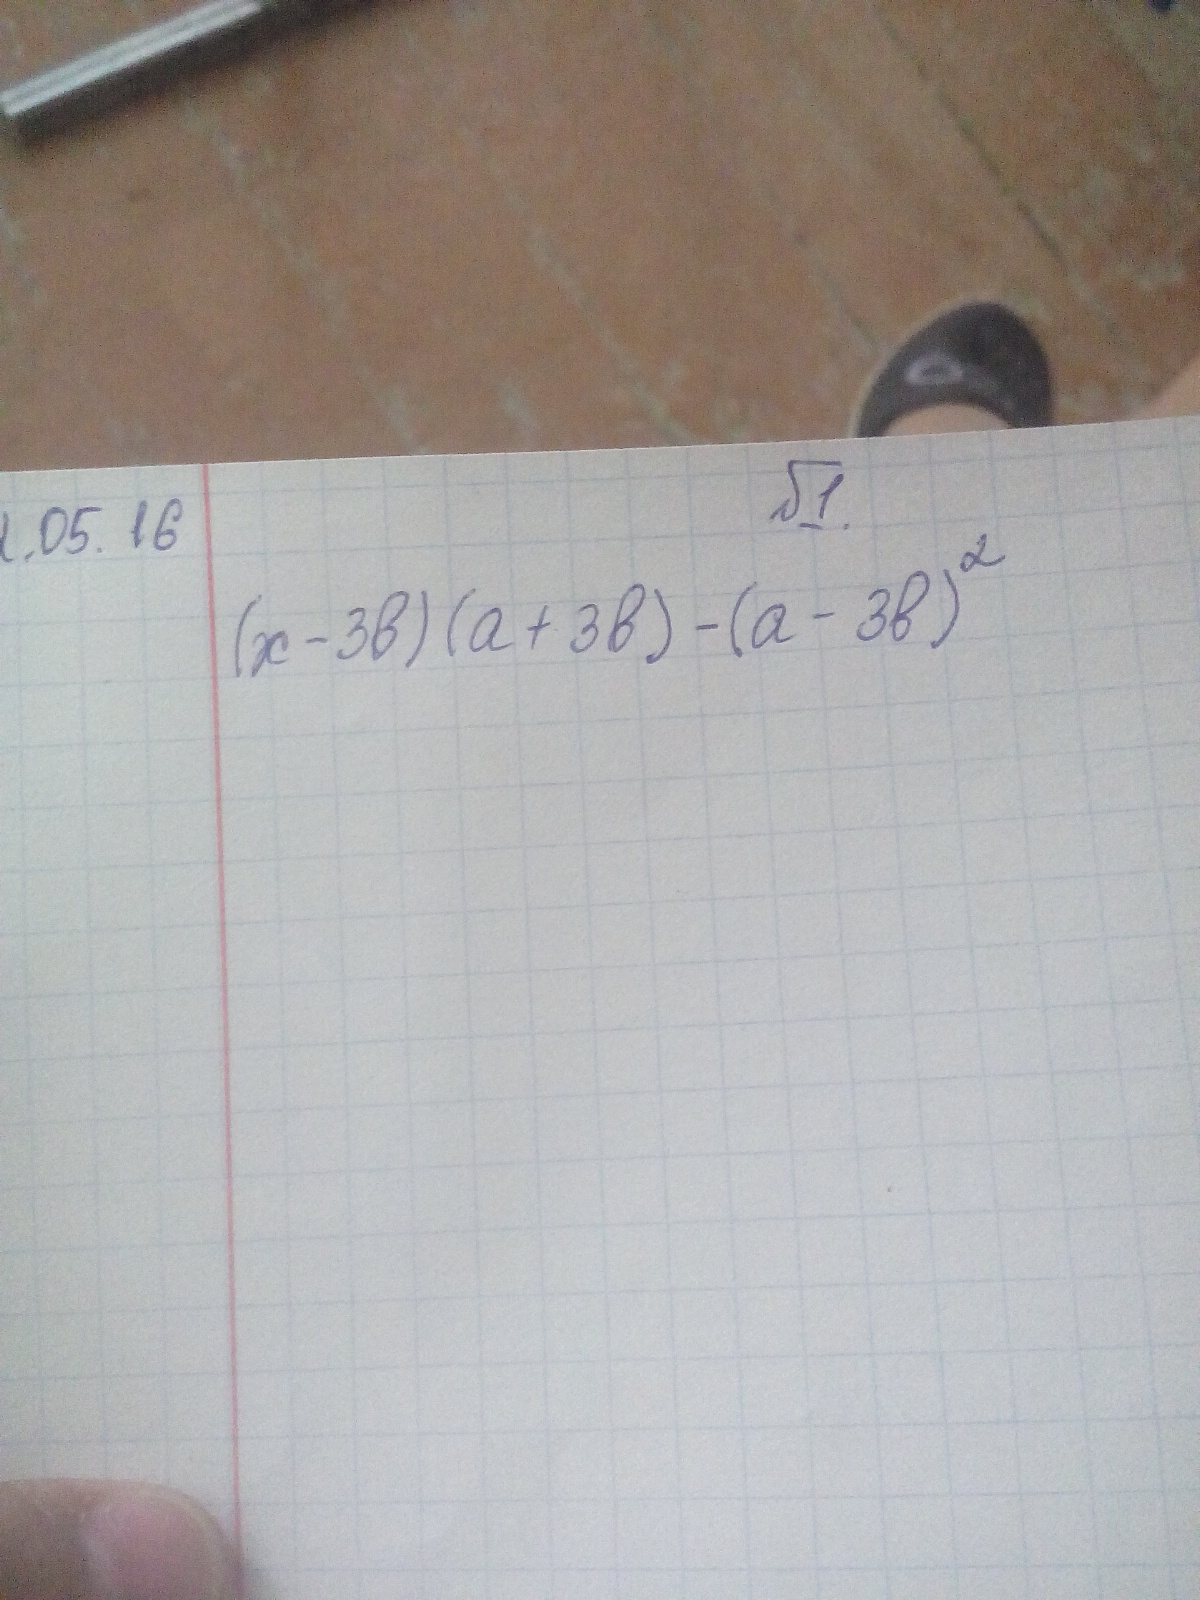 .05.16
√1.
(x - 3в)(a + 3в) - (a - 3в)²